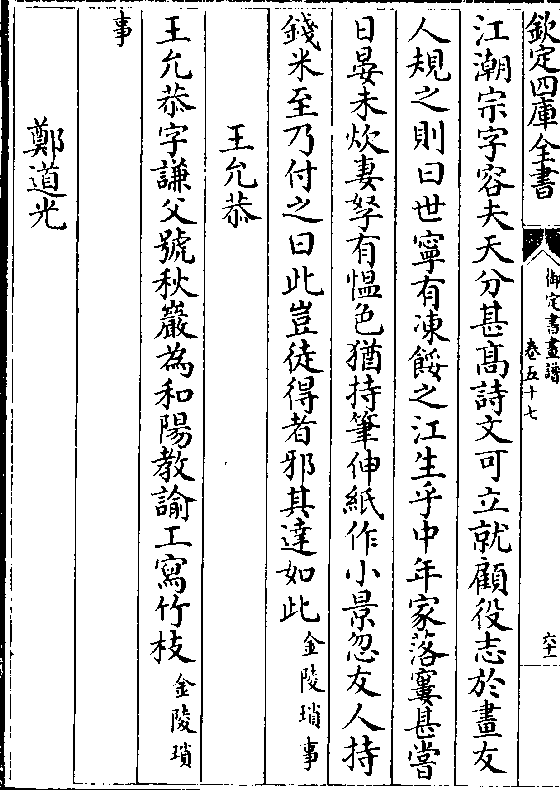 欽定四庫全書
御定書畫譜
卷五十七
六十一
江潮宗字容夫天分甚髙詩文可立就顧役志於畫友
人規之則曰世寧有凍餒之江生乎中年家落寠甚嘗
日晏未炊妻孥有愠色猶持筆伸紙作小景忽友人持
錢米至乃付之曰此豈徒得者邪其達如此金陵瑣事
王允恭
王允恭字謙父號秋巖為和陽教諭工寫竹枝金陵瑣
事
鄭道光